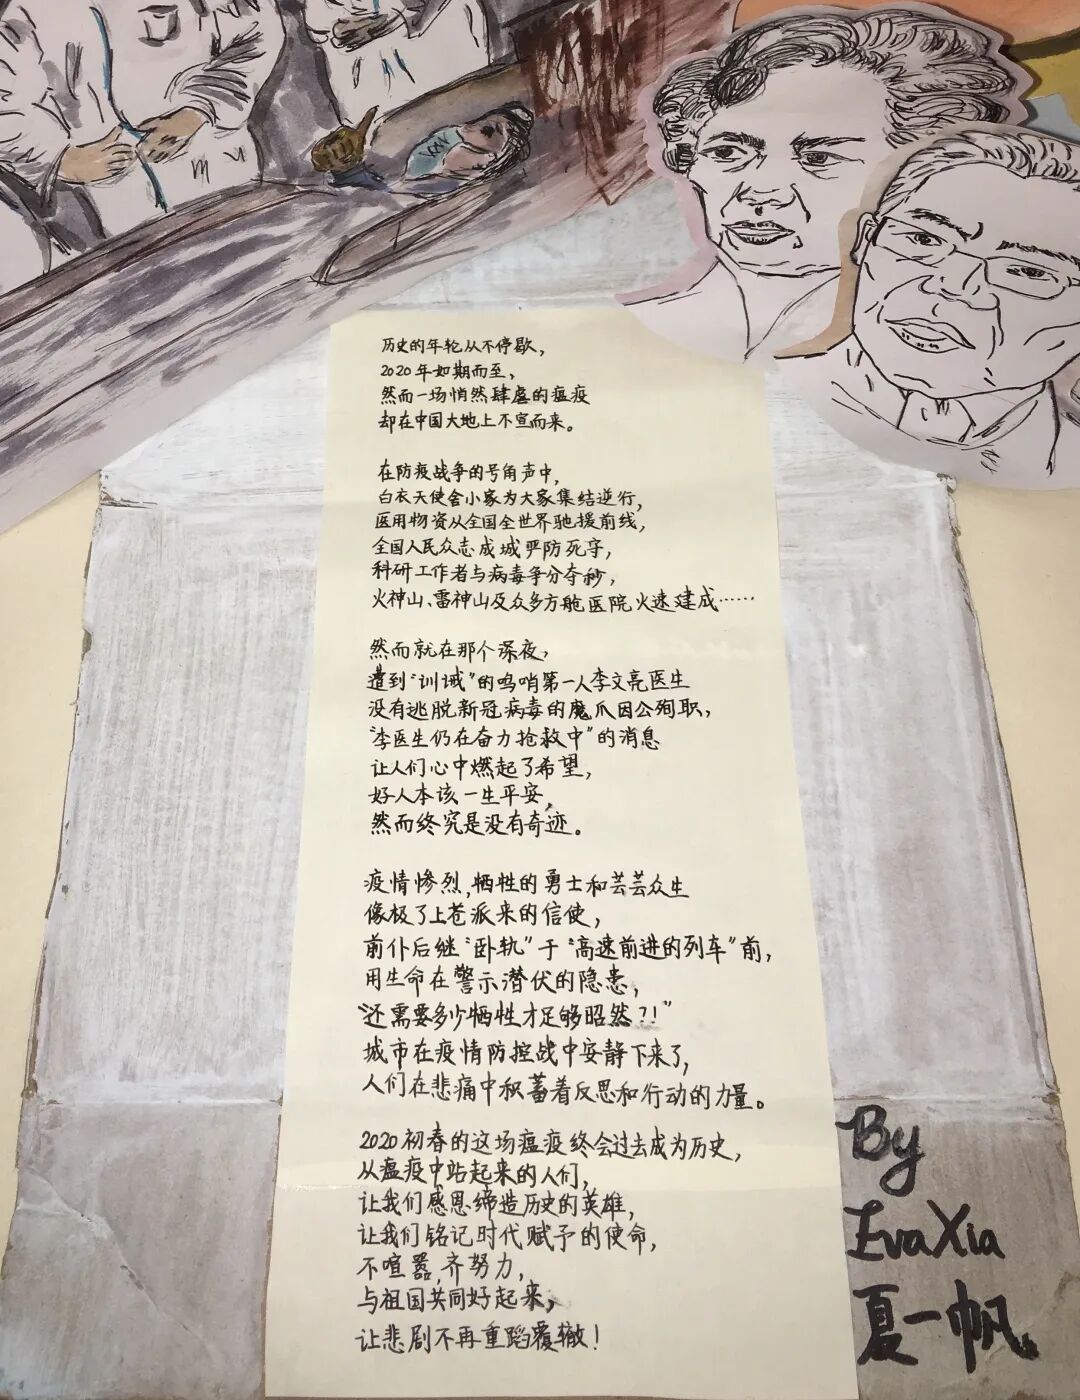 历史的年轮从不停歇，
2020年如期而至，
然而一场悄然肆虐的瘟疫
却在中国大地上不宣而来。
在防疫战争的号角声中，
白衣天使舍小家为大家集结逆行，
医用物资从全国全世界驰援前线，
全国人民众志成城严防死守，
科研工作者与病毒争分夺秒，
火神山、雷神山及众多方舱医院火速建成……
然而就在那个深夜，
遭到“训诫”的呜哨第一人李文亮医生
没有逃脱新冠病毒的魔爪因公殉职，
“李医生仍在奋力抢救中”的消息
让人们心中燃起了希望，
好人本该一生平安，
然而终究是没有奇迹。
疫情惨烈，牺牲的勇士和芸芸众生
像极了上苍派来的信使，
前仆后继“卧轨”于“高速前进的列车”前，
用生命在警示潜伏的隐患，
“还需要多少牺牲才足够昭然？！”
城市在疫情防控战中安静下来了，
人们在悲痛中积蓄着反思和行动的力量。
2020初春的这场瘟疫终会过去成为历史，
从瘟疫中站起来的人们，
让我们感恩缔造历史的英雄，
让我们铭记时代赋予的使命，
不喧嚣，齐努力，
与祖国共同好起来，
让悲剧不再重蹈覆辙！
By
Eva Xia
夏一帆